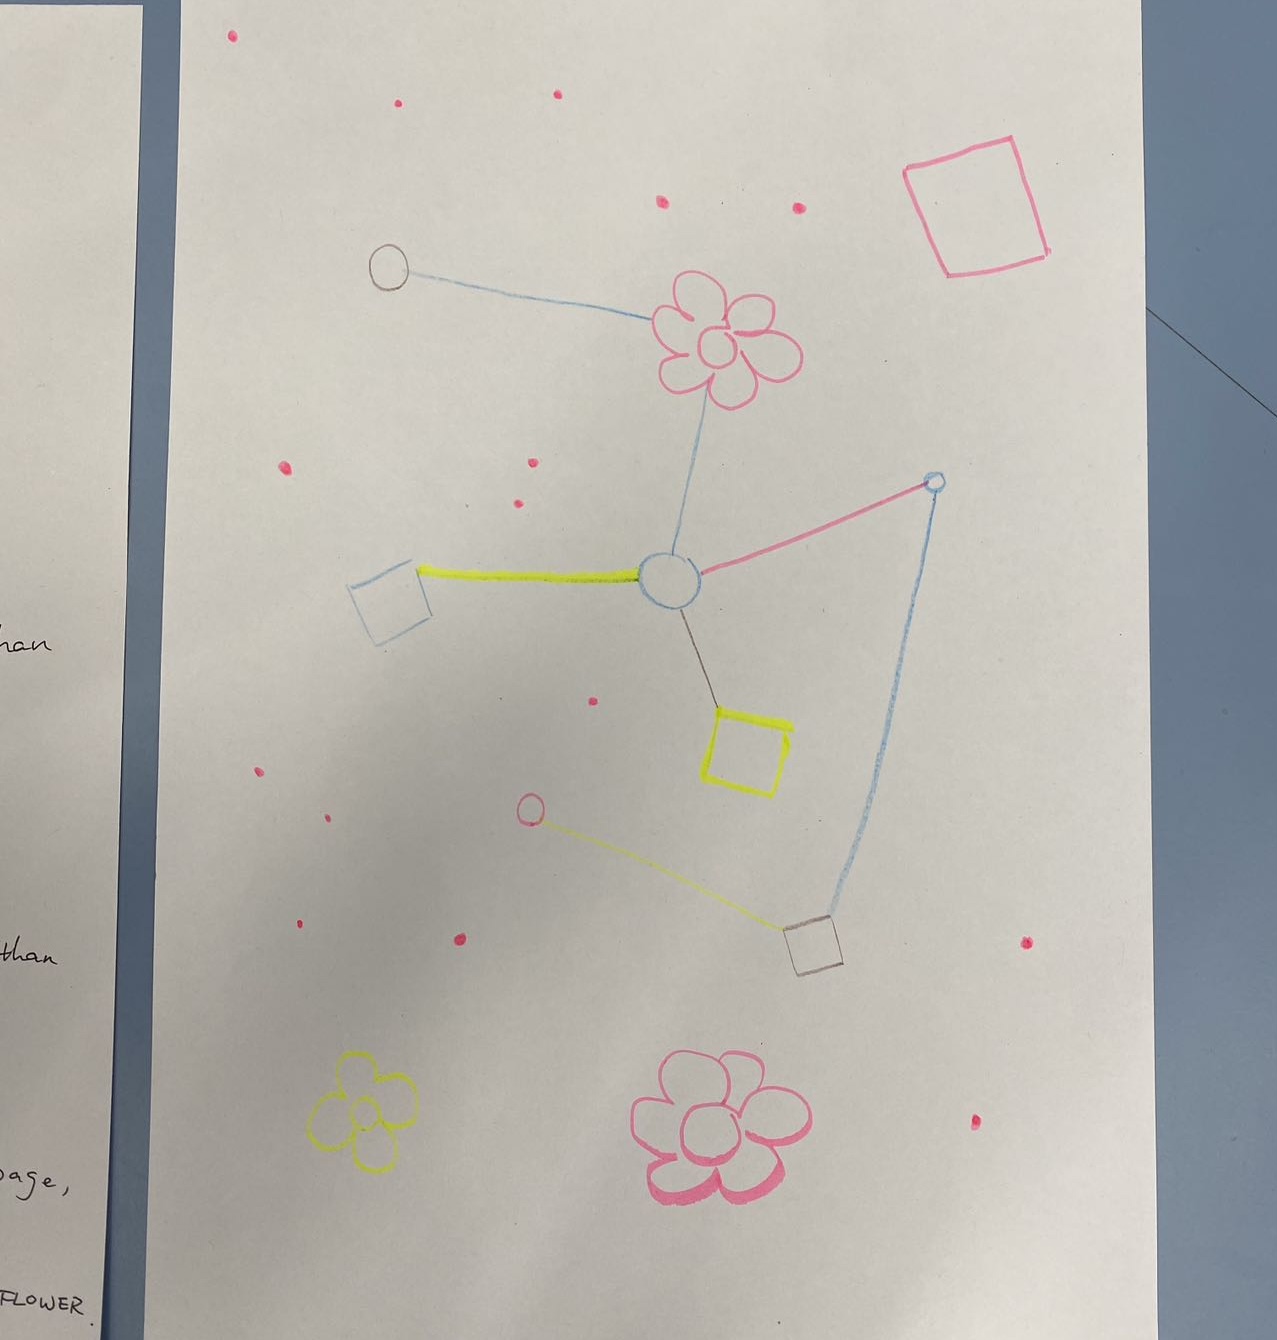 than
than
page,
FLOWER.